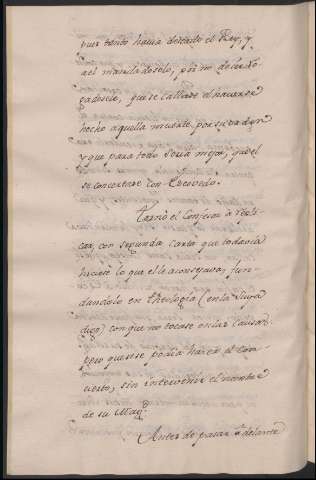 pues tanto havia deseado el Rey, y
a el mandadoselo, por no
que se callase el haverse
hecho aquella muerte por su orden
y que para todo seria mejor, que el
se concertase con Escovedo.
Tornó el Confesor a repli-
car, con segunda Carta que todavia
hiciese lo que el le aconsejava, fun-
dandolo en Theologia (en la Suya
digo) con que no tocase en las Causas
pero que se podia hacer el con-
cierto, sin intervenir el nombre
de su Magd.
Antes de pasar adelante